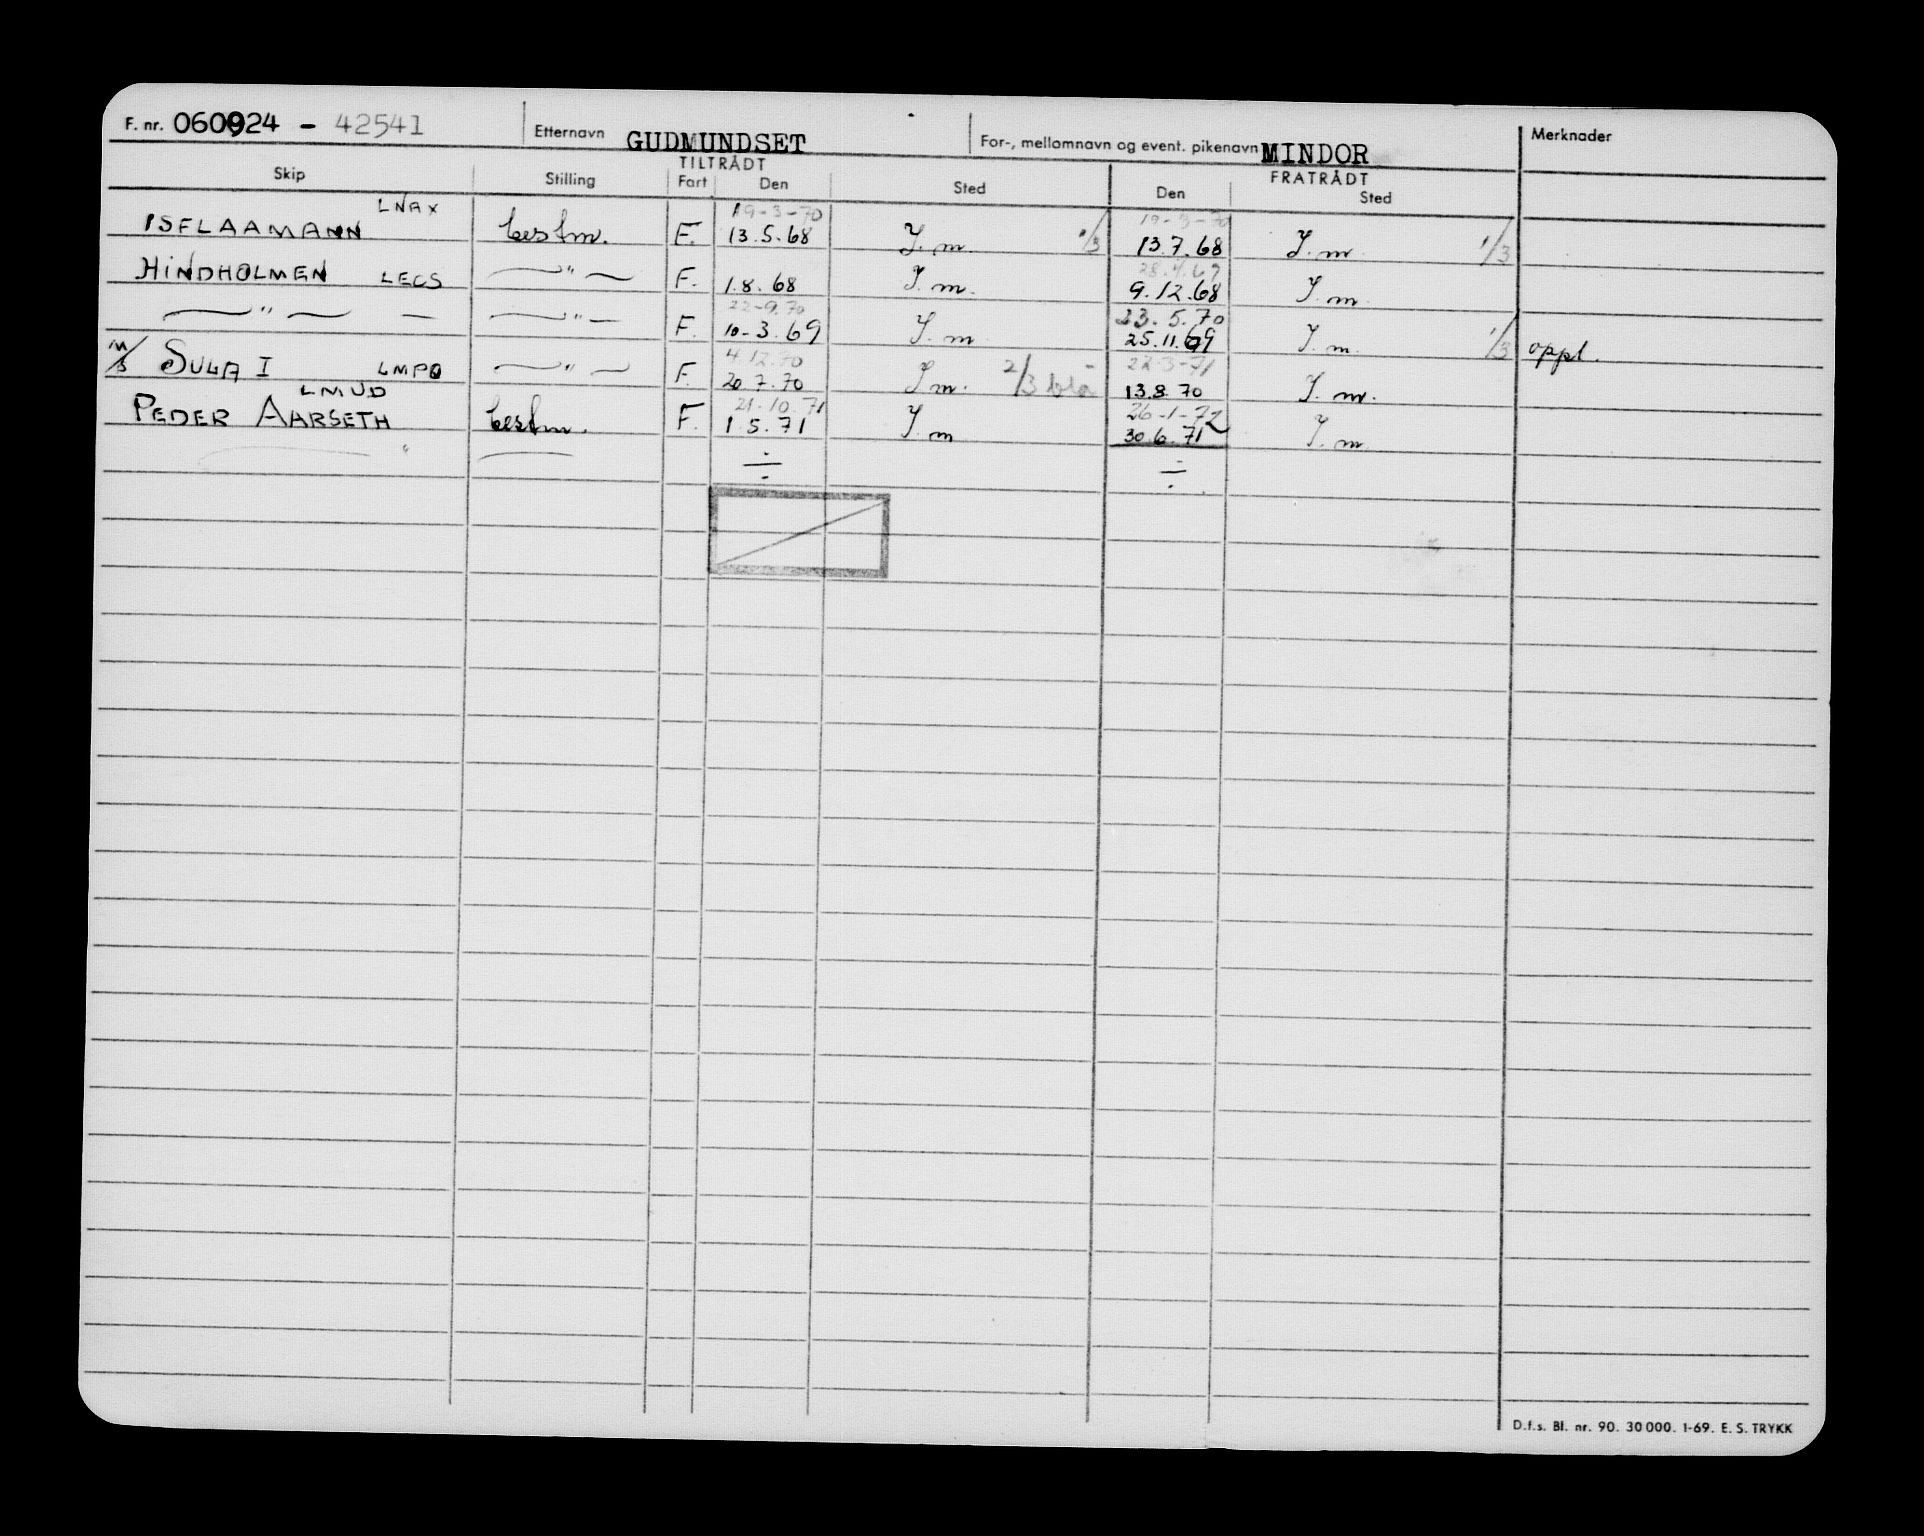 F. nr. 060924 - 42541 Etternavn GUDMUNDSET For-, mellomnavn og event. pikenavn MINDOR Merknader
TILTRÅDT FRATRÅDT
Skip Stilling Fart Den Sted Den Sted
LNAX 19-3-70 19-3-70
ISFLAAMANN bestm. F. 13.5.68 I. m. 1/3 13.7.68 I. m. 1/3
28.4.69
HINDHOLMEN LECS — " — F. 1.8.68 I. m. 9.12.68 I. m.
22-9.70 23.5.70
— " — — — " — F. 10-3.69 I. m. 25.11.69 I. m. 1/3 oppl.
4.12.70 22-3-71
M/S SULA I LMPQ — " — F. 20.7.70 I. m. 2/3 blå 13.8.70 I. m.
LMUD 21.10.71 26-1-72
PEDER AARSETH bestm. F. 1.5.71 I. m 30.6.71 I. m.
— " — — ÷ ÷
D.f.s. Bl. nr. 90. 30 000. 1-69. E. S. TRYKK